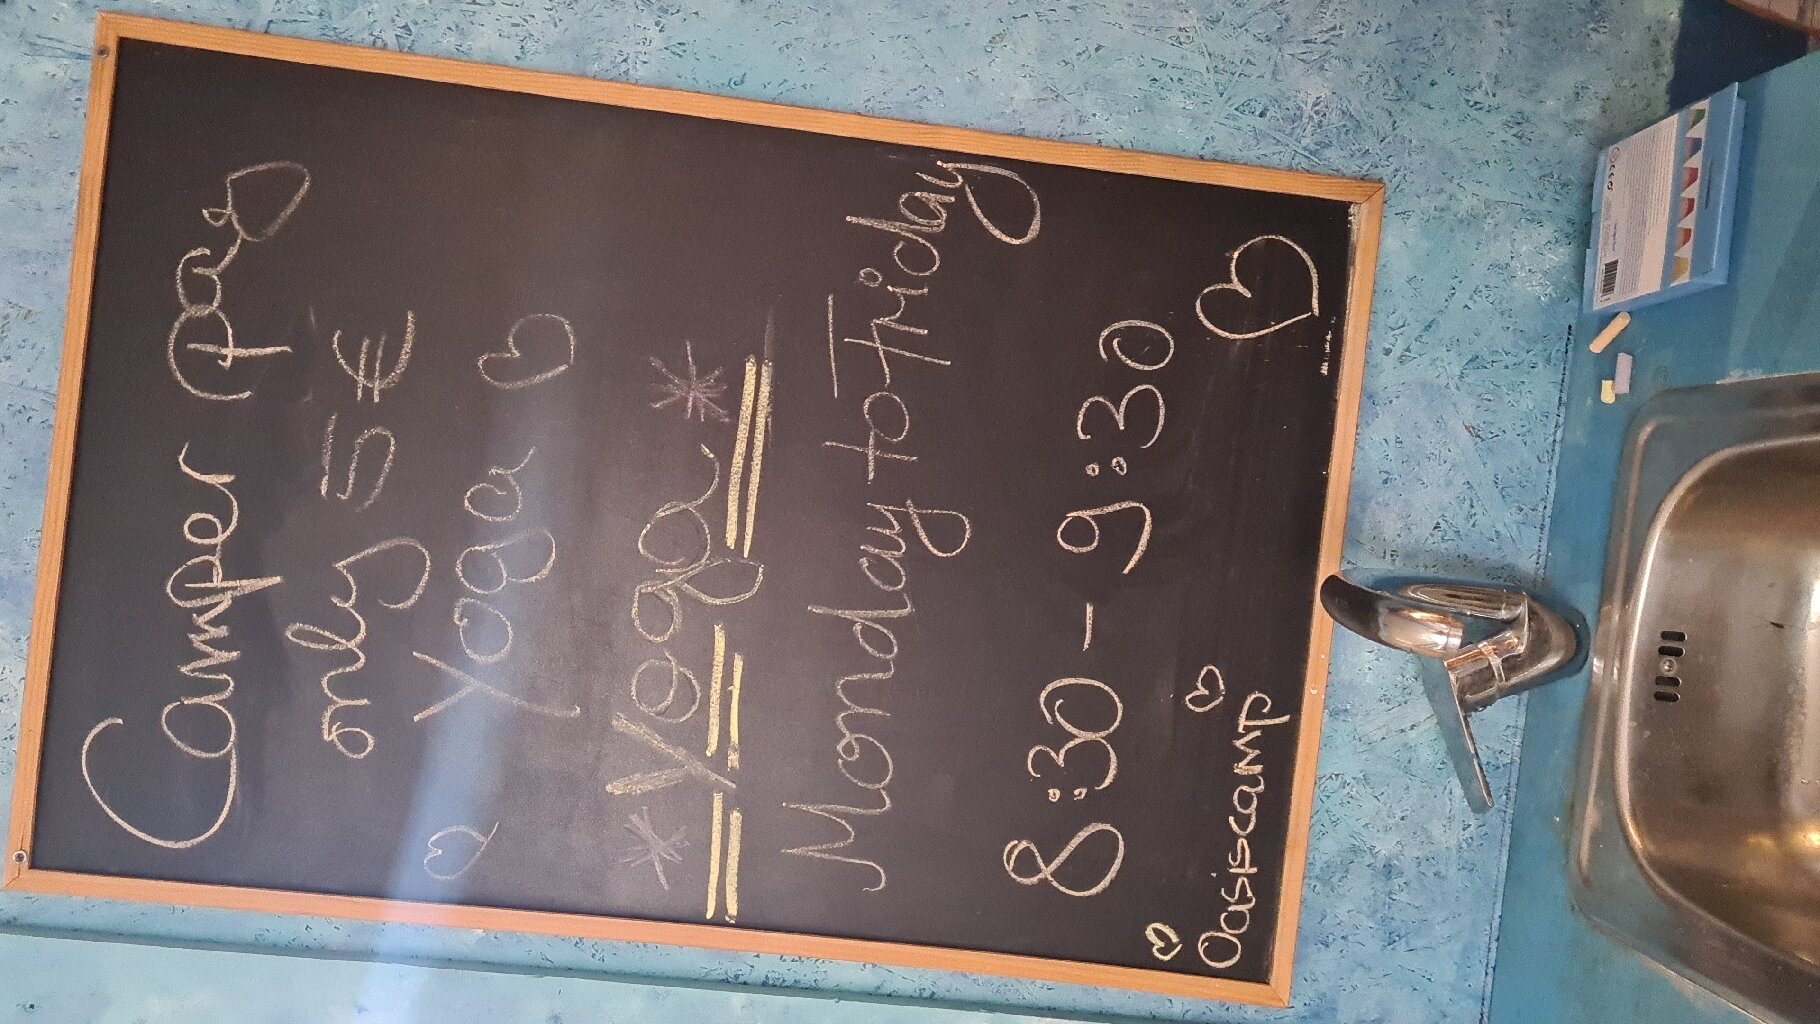 Camper pas
only 5€
Yoga
Yoga
Monday to Friday
8:30 - 9:30
Oasiscamp